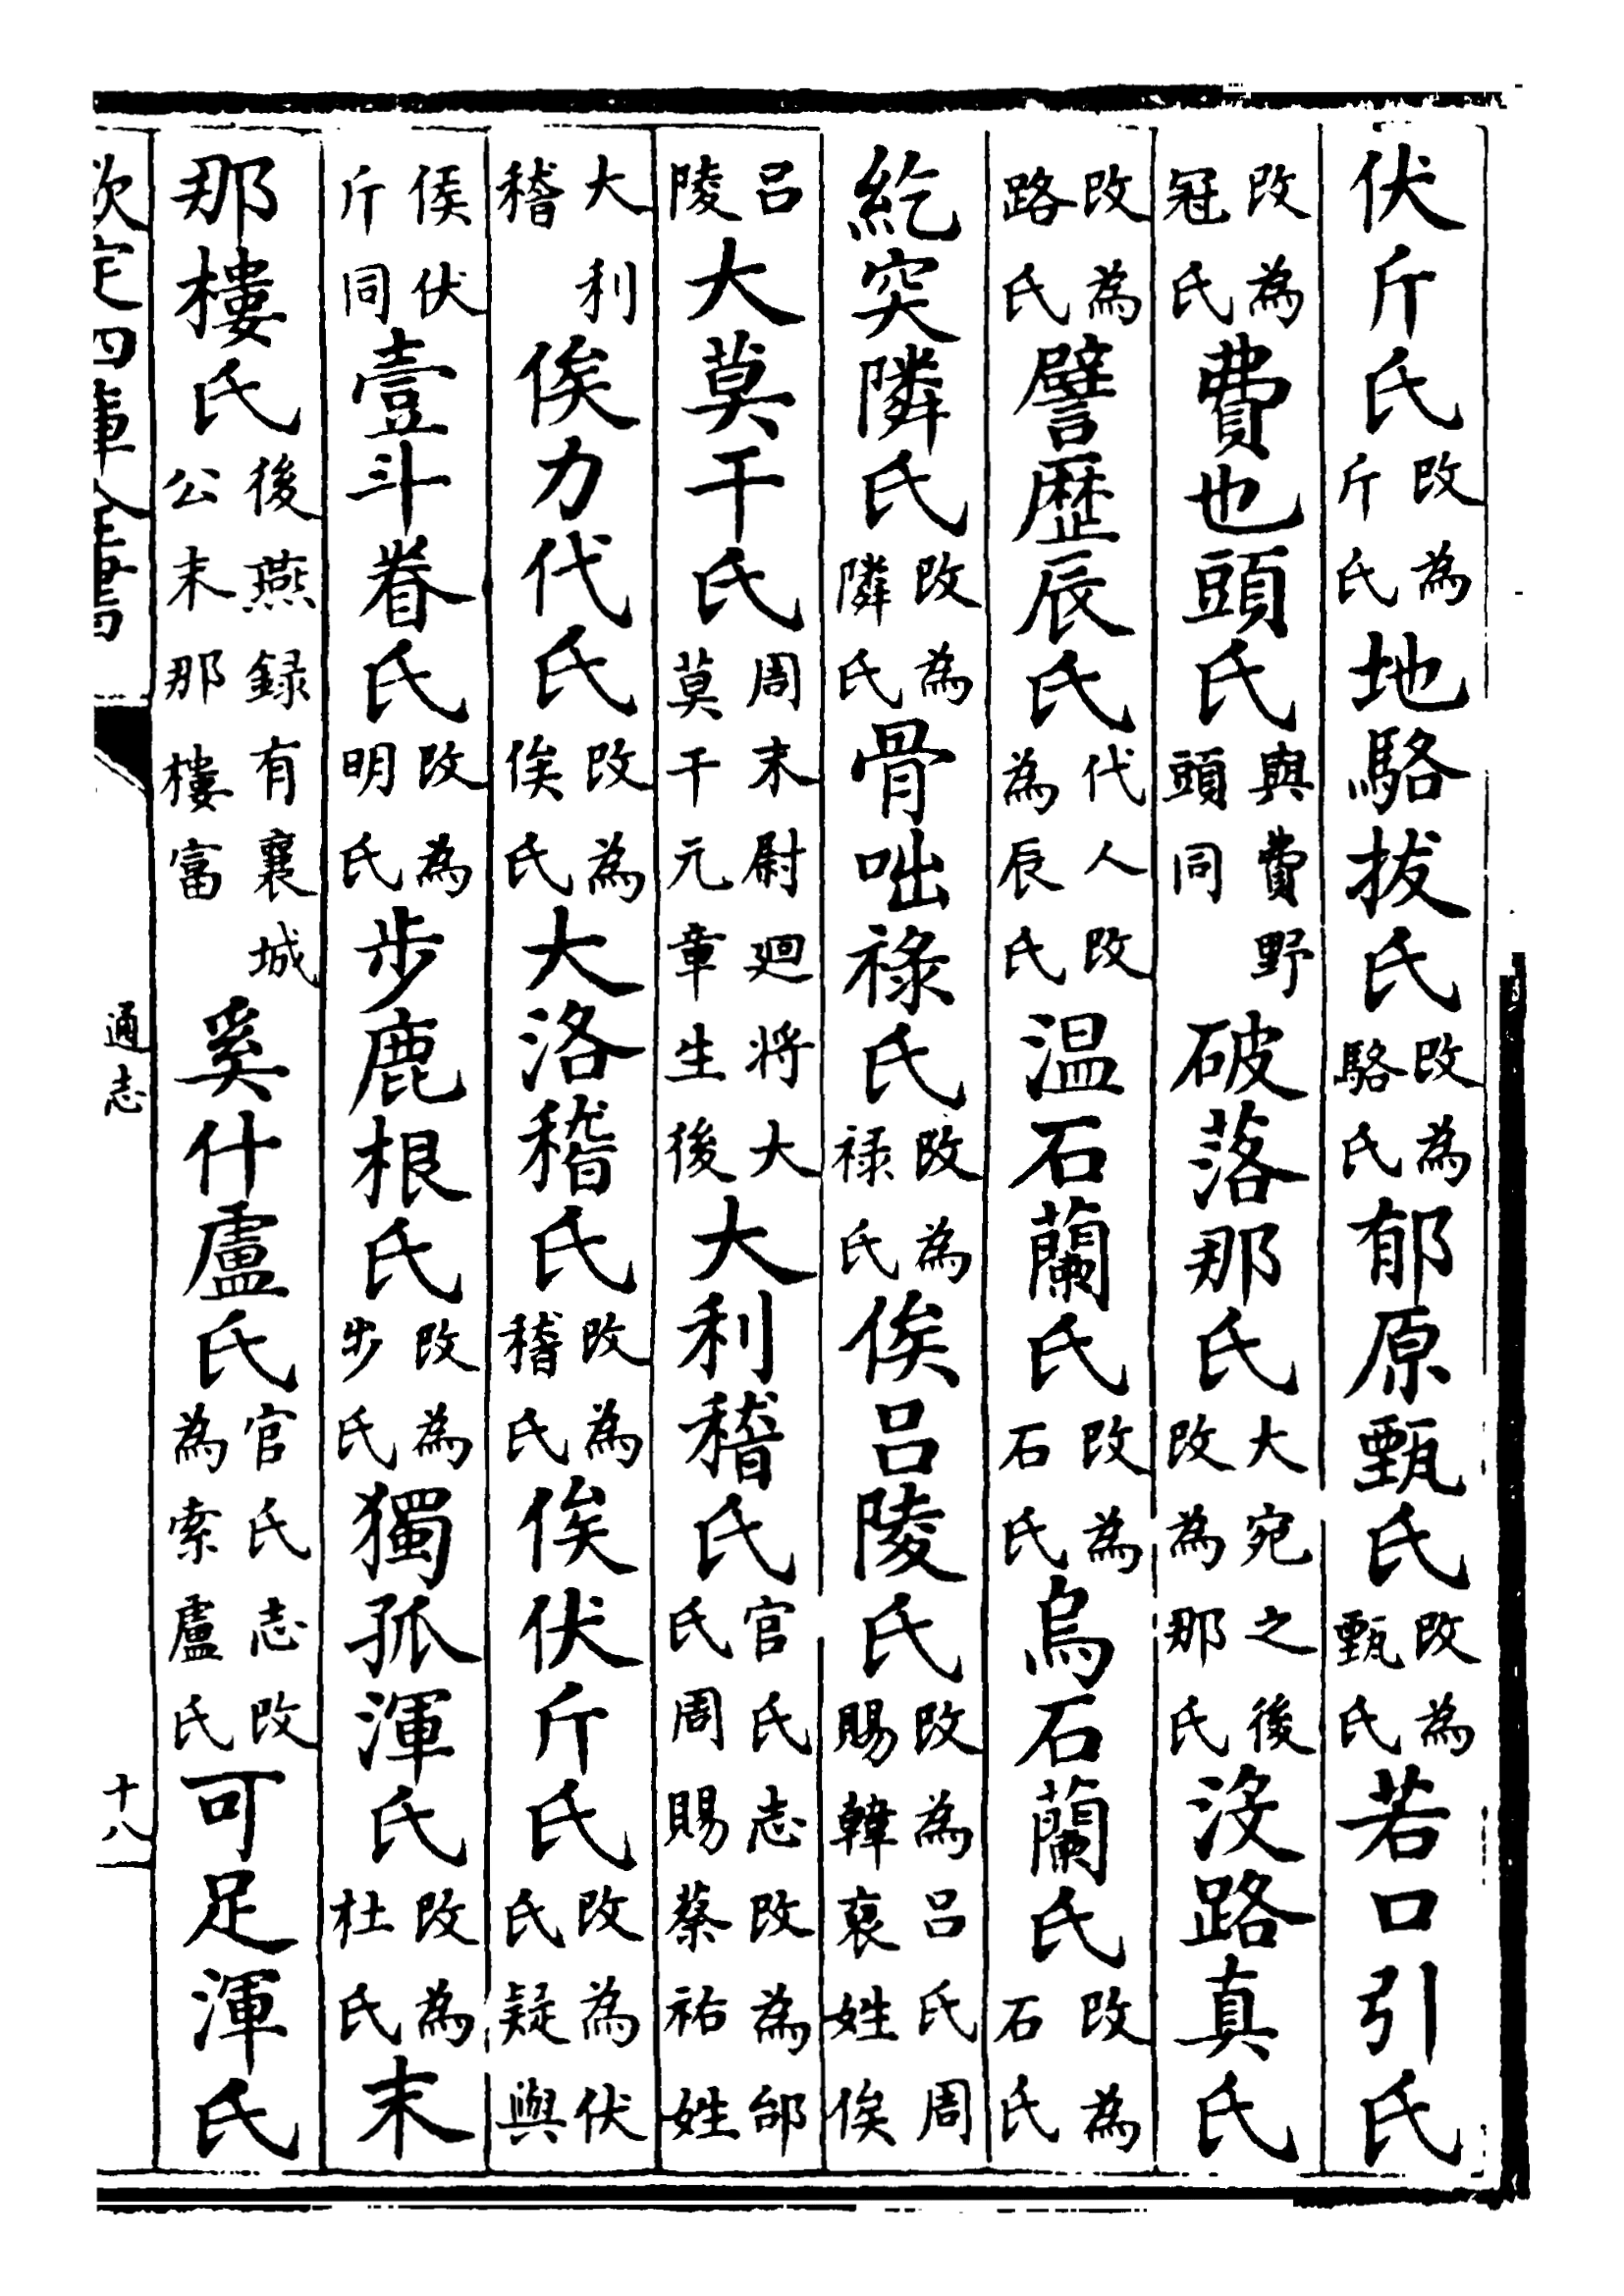 伏斤氏改為斤氏地駱拔氏改為駱氏郁原甄氏改為甄氏若口引氏
改為冠氏費也頭氏與費野頭同破落那氏大宛之後改為那氏沒路真氏
改為路氏譬歷辰氏代人改為辰氏温石蘭氏改為石氏烏石蘭氏改為石氏
紇突隣氏改為隣氏骨咄祿氏改為祿氏俟呂陵氏改為呂氏周賜韓裒姓俟
呂陵大莫干氏周末尉迴將大莫干元章生後大利稽氏官氏志改為郃氏周賜蔡祐姓
大利稽俟力代氏改為俟氏大洛稽氏改為稽氏俟伏斤氏改為伏氏疑與
侯伏斤同壹斗眷氏改為明氏步鹿根氏改為步氏獨孤渾氏改為杜氏末
那樓氏後燕録有襄城公末那樓富奚什盧氏官氏志改為索盧氏可足渾氏
欽定四庫全書
通志
十八